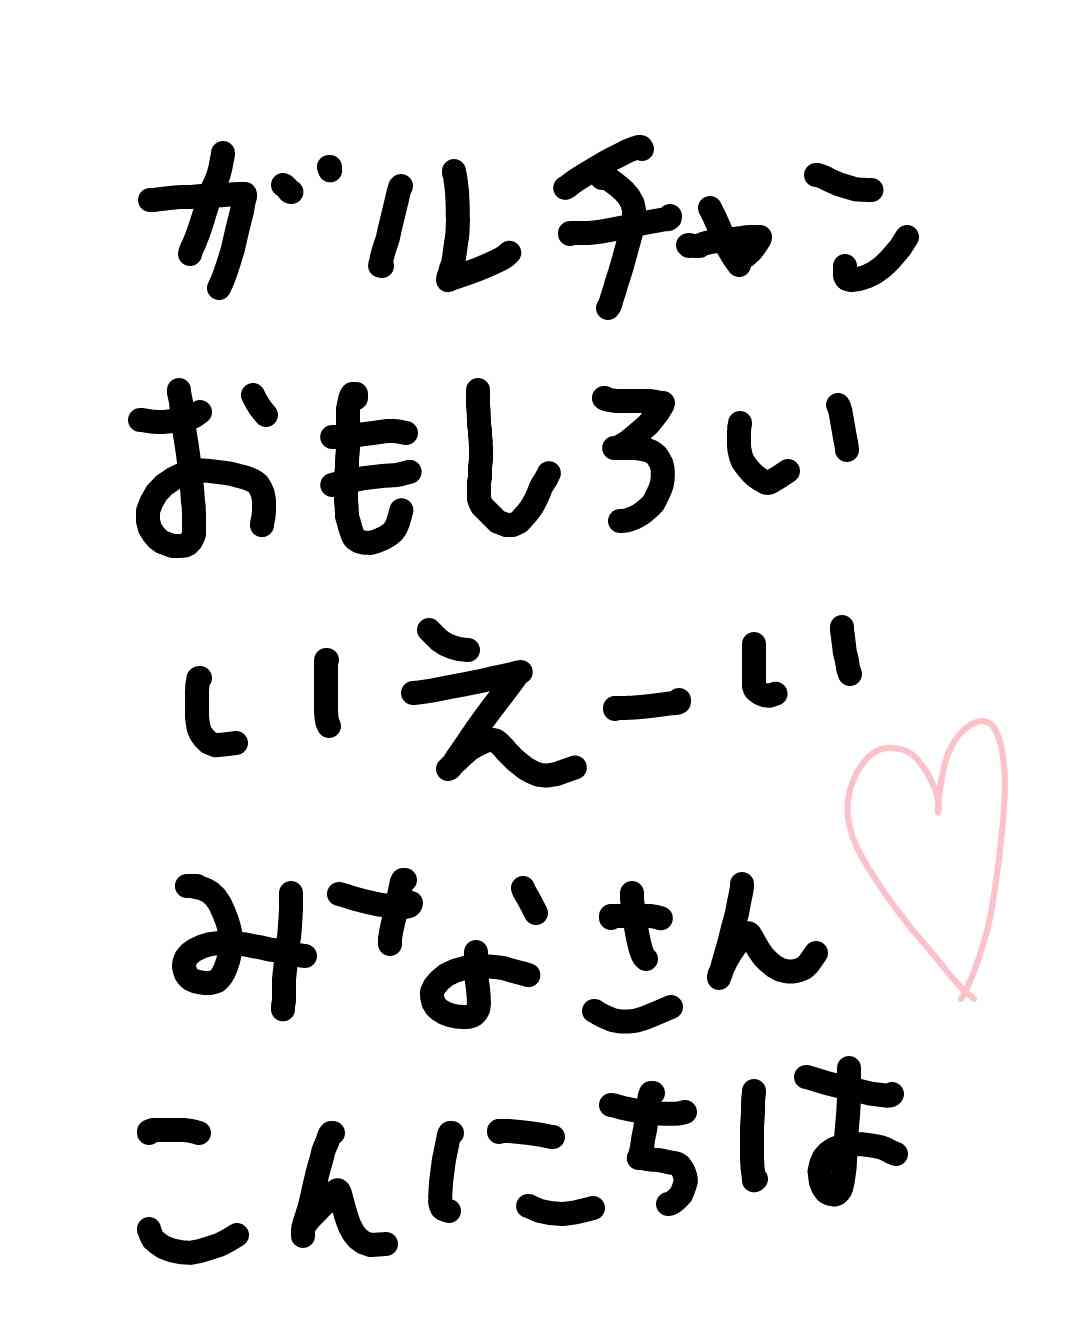 ガルチャン
おもしろい
いえーい
みなさん
こんにちは